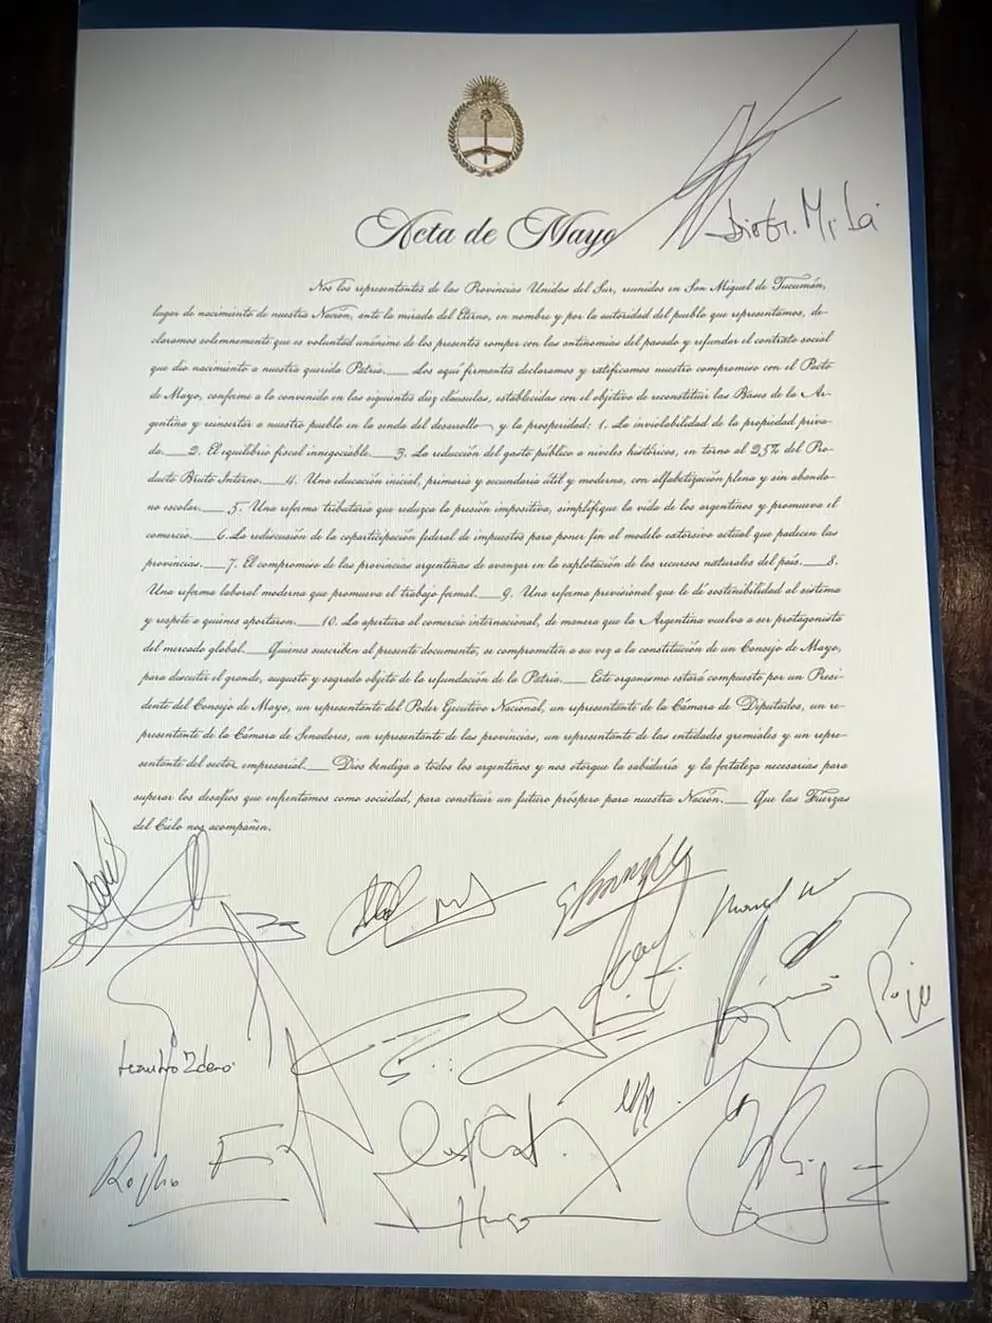 Acta de Mayo
Nos los representantes de las Provincias Unidas del Sur, reunidos en San Miguel de Tucumán,
lugar de nacimiento de nuestra Nación, ante la mirada del Eterno, en nombre y por la autoridad del pueblo que representamos, de-
claramos solemnemente que es voluntad unánime de los presentes romper con las antinomias del pasado y refundar el contrato social
que dio nacimiento a nuestra querida Patria.__ Los aquí firmantes declaramos y ratificamos nuestro compromiso con el Pacto
de Mayo, conforme a lo convenido en las siguientes diez cláusulas, establecidas con el objetivo de reconstituir las Bases de la Ar-
gentina y reinsertar a nuestro pueblo en la senda del desarrollo y la prosperidad: 1. La inviolabilidad de la propiedad priva-
da.__ 2. El equilibrio fiscal innegociable.__ 3. La reducción del gasto público a niveles históricos, en torno al 25% del Pro-
ducto Bruto Interno.__ 4. Una educación inicial, primaria y secundaria útil y moderna, con alfabetización plena y sin abando-
no escolar.__ 5. Una reforma tributaria que reduzca la presión impositiva, simplifique la vida de los argentinos y promueva el
comercio.__ 6. La rediscusión de la coparticipación federal de impuestos para poner fin al modelo extorsivo actual que padecen las
provincias.__ 7. El compromiso de las provincias argentinas de avanzar en la explotación de los recursos naturales del país.__ 8.
Una reforma laboral moderna que promueva el trabajo formal.__ 9. Una reforma previsional que le dé sostenibilidad al sistema
y respete a quienes aportaron.__ 10. La apertura al comercio internacional, de manera que la Argentina vuelva a ser protagonista
del mercado global.__ Quienes suscriben al presente documento, se comprometen a su vez a la constitución de un Consejo de Mayo,
para discutir el grande, augusto y sagrado objeto de la refundación de la Patria.__ Este organismo estará compuesto por un Presi-
dente del Consejo de Mayo, un representante del Poder Ejecutivo Nacional, un representante de la Cámara de Diputados, un re-
presentante de la Cámara de Senadores, un representante de las provincias, un representante de las entidades gremiales y un repre-
sentante del sector empresarial.__ Dios bendiga a todos los argentinos y nos otorgue la sabiduría y la fortaleza necesarias para
superar los desafíos que enfrentamos como sociedad, para construir un futuro próspero para nuestra Nación.__ Que las Fuerzas
del Cielo nos acompañen.
Leandro Zdero
Hugo